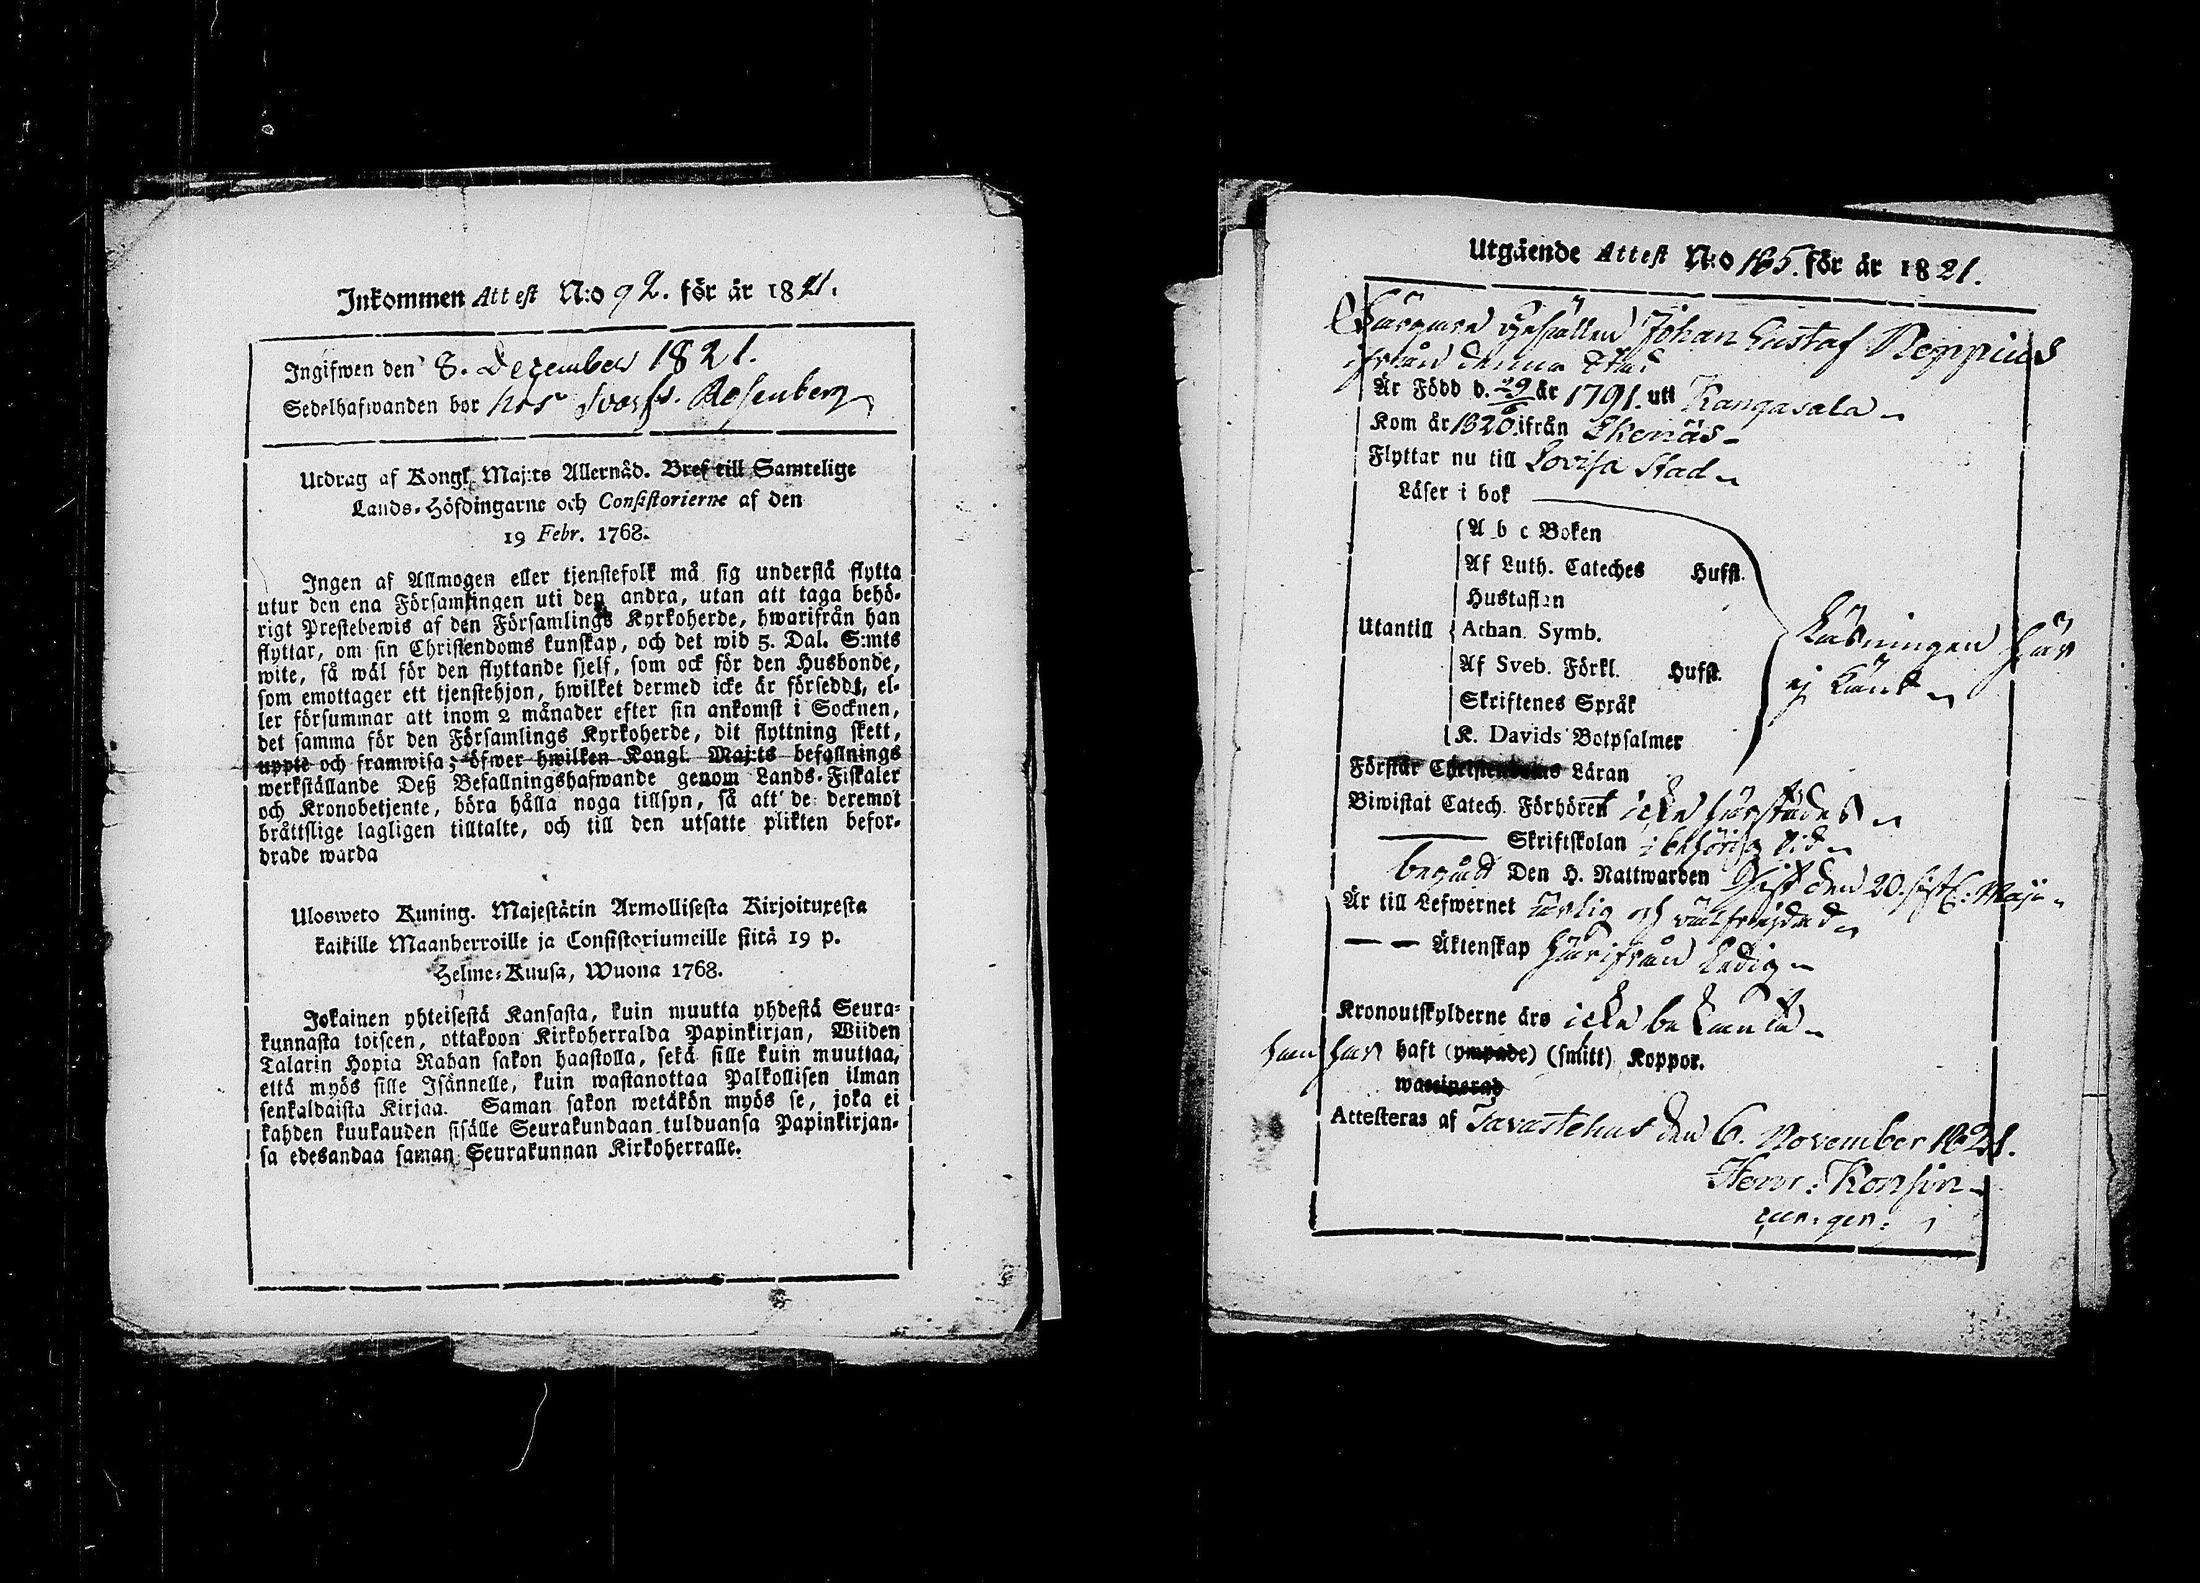 Inkommen Attest N:o 92. för år 1821.
Ingifwen den 8. December 1821.
Sedelhafwanden bor hos Svarfv. Rosenberg
Utdrag af Kongl. Maj:ts Allernåd. Bref till Samtelige
Lands-Höfdingarne och Consistorierne af den
19 Febr. 1768.
Ingen af Allmogen eller tjenstefolk må sig understå flytta
utur den ena Församlingen uti den andra, utan att taga behö-
rigt Prestebewis af den Församlings Kyrkoherde, hwarifrån han
flyttar, om sin Christendoms kunskap, och det wid 5. Dal. S:mts
wite, så wäl för den flyttande sjelf, som ock för den Husbonde,
som emottager ett tjenstehjon, hwilket dermed icke är förseddt, el-
ler försummar att inom 2 månader efter sin ankomst i Socknen,
det samma för den Församlings Kyrkoherde, dit flyttning skett,
uppte och framwisa; öfwer hwilken Kongl. Maj:ts befallnings
werkställande Deß Befallningshafwande genom Lands-Fiskaler
och Kronobetjente, böra hålla noga tillsyn, så att de deremot
bråttslige lagligen tilltalte, och till den utsatte plikten befor-
drade warda
Ulosweto Kuning. Majestätin Armollisesta Kirjoituxesta
kaikille Maanherroille ja Consistoriumeille siitä 19 p.
Helme-Kuusa, Wuona 1768.
Jokainen yhteisestä Kansasta, kuin muutta yhdestä Seura-
kunnasta toiseen, ottakoon Kirkoherralda Papinkirjan, Wiiden
Talarin Hopia Rahan sakon haastolla, sekä sille kuin muuttaa,
että myös sille Isännelle, kuin wastanottaa Palkollisen ilman
senkaldaista Kirjaa. Saman sakon wetäkön myös se, joka ei
kahden kuukauden sisälle Seurakundaan tulduansa Papinkirjan-
sa edesandaa saman Seurakunnan Kirkoherralle.
Utgående Attest N:o 165. för år 1821.
Gesällen Johan Gustaf Reppius
ifrån denna Stad
Är Född d. 29/6 år 1791. uti Kangasala
Kom år 1820 ifrån Ekenäs
Flyttar nu till Lovisa Stad
Läser i bok
A b c Boken
Af Luth. Cateches Hufst.
Hustaflan
Utantill Athan. Symb.
Af Sveb. Förkl. Hufst.
Skriftenes Språk
K. Davids Botpsalmer
Läsningen här
ej känd
Förstår Christendoms Läran
Biwistat Catech. Förhören icke härstädes
Skriftskolan i behörig tid
begådt Den H. Nattwarden sist den 20. sistl. Maji
Är till Lefwernet ärlig och välfrejdad
Äktenskap härifrån Ledig
Kronoutskylderne äro icke bekanta
han har haft (ympade) (smitt) Koppor.
Attesteras af Tavastehus den 6. November 1821.
Henr: Konsin